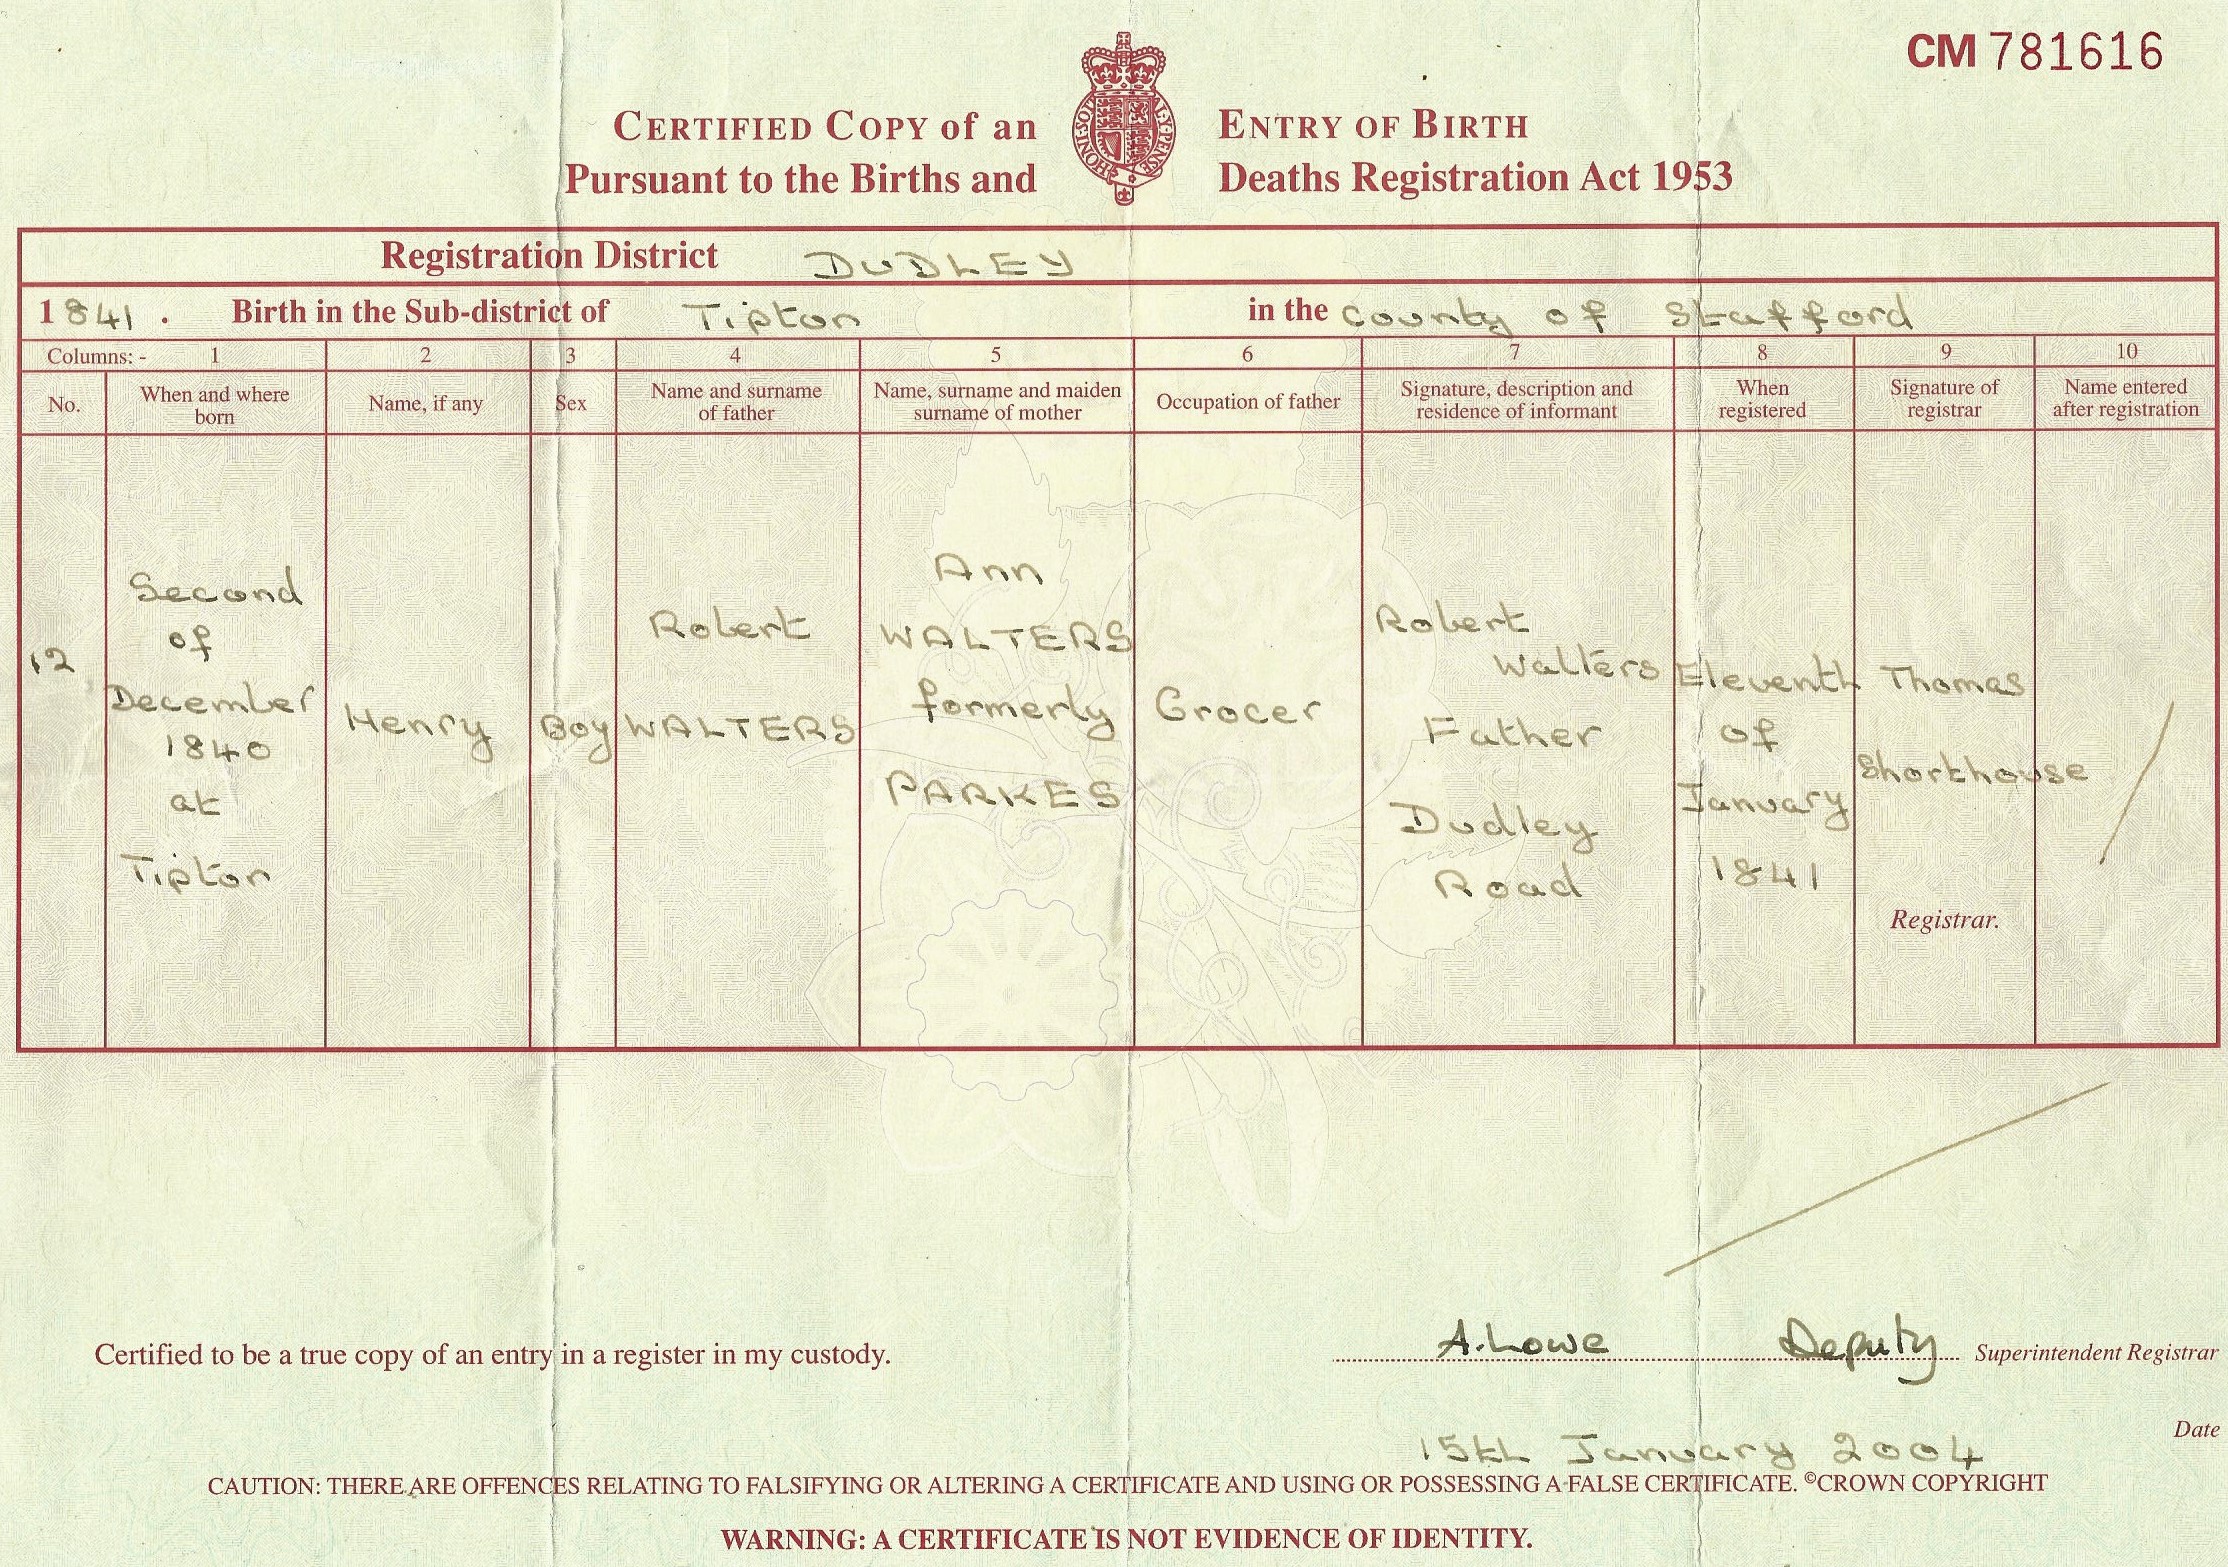 CM 781616
CERTIFIED COPY of an ENTRY OF BIRTH
Pursuant to the Births and Deaths Registration Act 1953
HONI·SOIT Y·PENSE
Registration District DUDLEY
1841. Birth in the Sub-district of Tipton in the County of Stafford
Columns: - 1 2 3 4 5 6 7 8 9 10
No.
When and where
born
Name, if any
Sex
Name and surname
of father
Name, surname and maiden
surname of mother
Occupation of father
Signature, description and
residence of informant
When
registered
Signature of
registrar
Name entered
after registration
12
Second
of
December
1840
at
Tipton
Henry
Boy
Robert
WALTERS
Ann
WALTERS
formerly
PARKES
Grocer
Robert
Walters
Father
Dudley
Road
Eleventh
of
January
1841
Thomas
Shorthouse
Registrar.
Certified to be a true copy of an entry in a register in my custody.
A. Lowe Deputy Superintendent Registrar
15th January 2004 Date
CAUTION: THERE ARE OFFENCES RELATING TO FALSIFYING OR ALTERING A CERTIFICATE AND USING OR POSSESSING A FALSE CERTIFICATE. ©CROWN COPYRIGHT
WARNING: A CERTIFICATE IS NOT EVIDENCE OF IDENTITY.